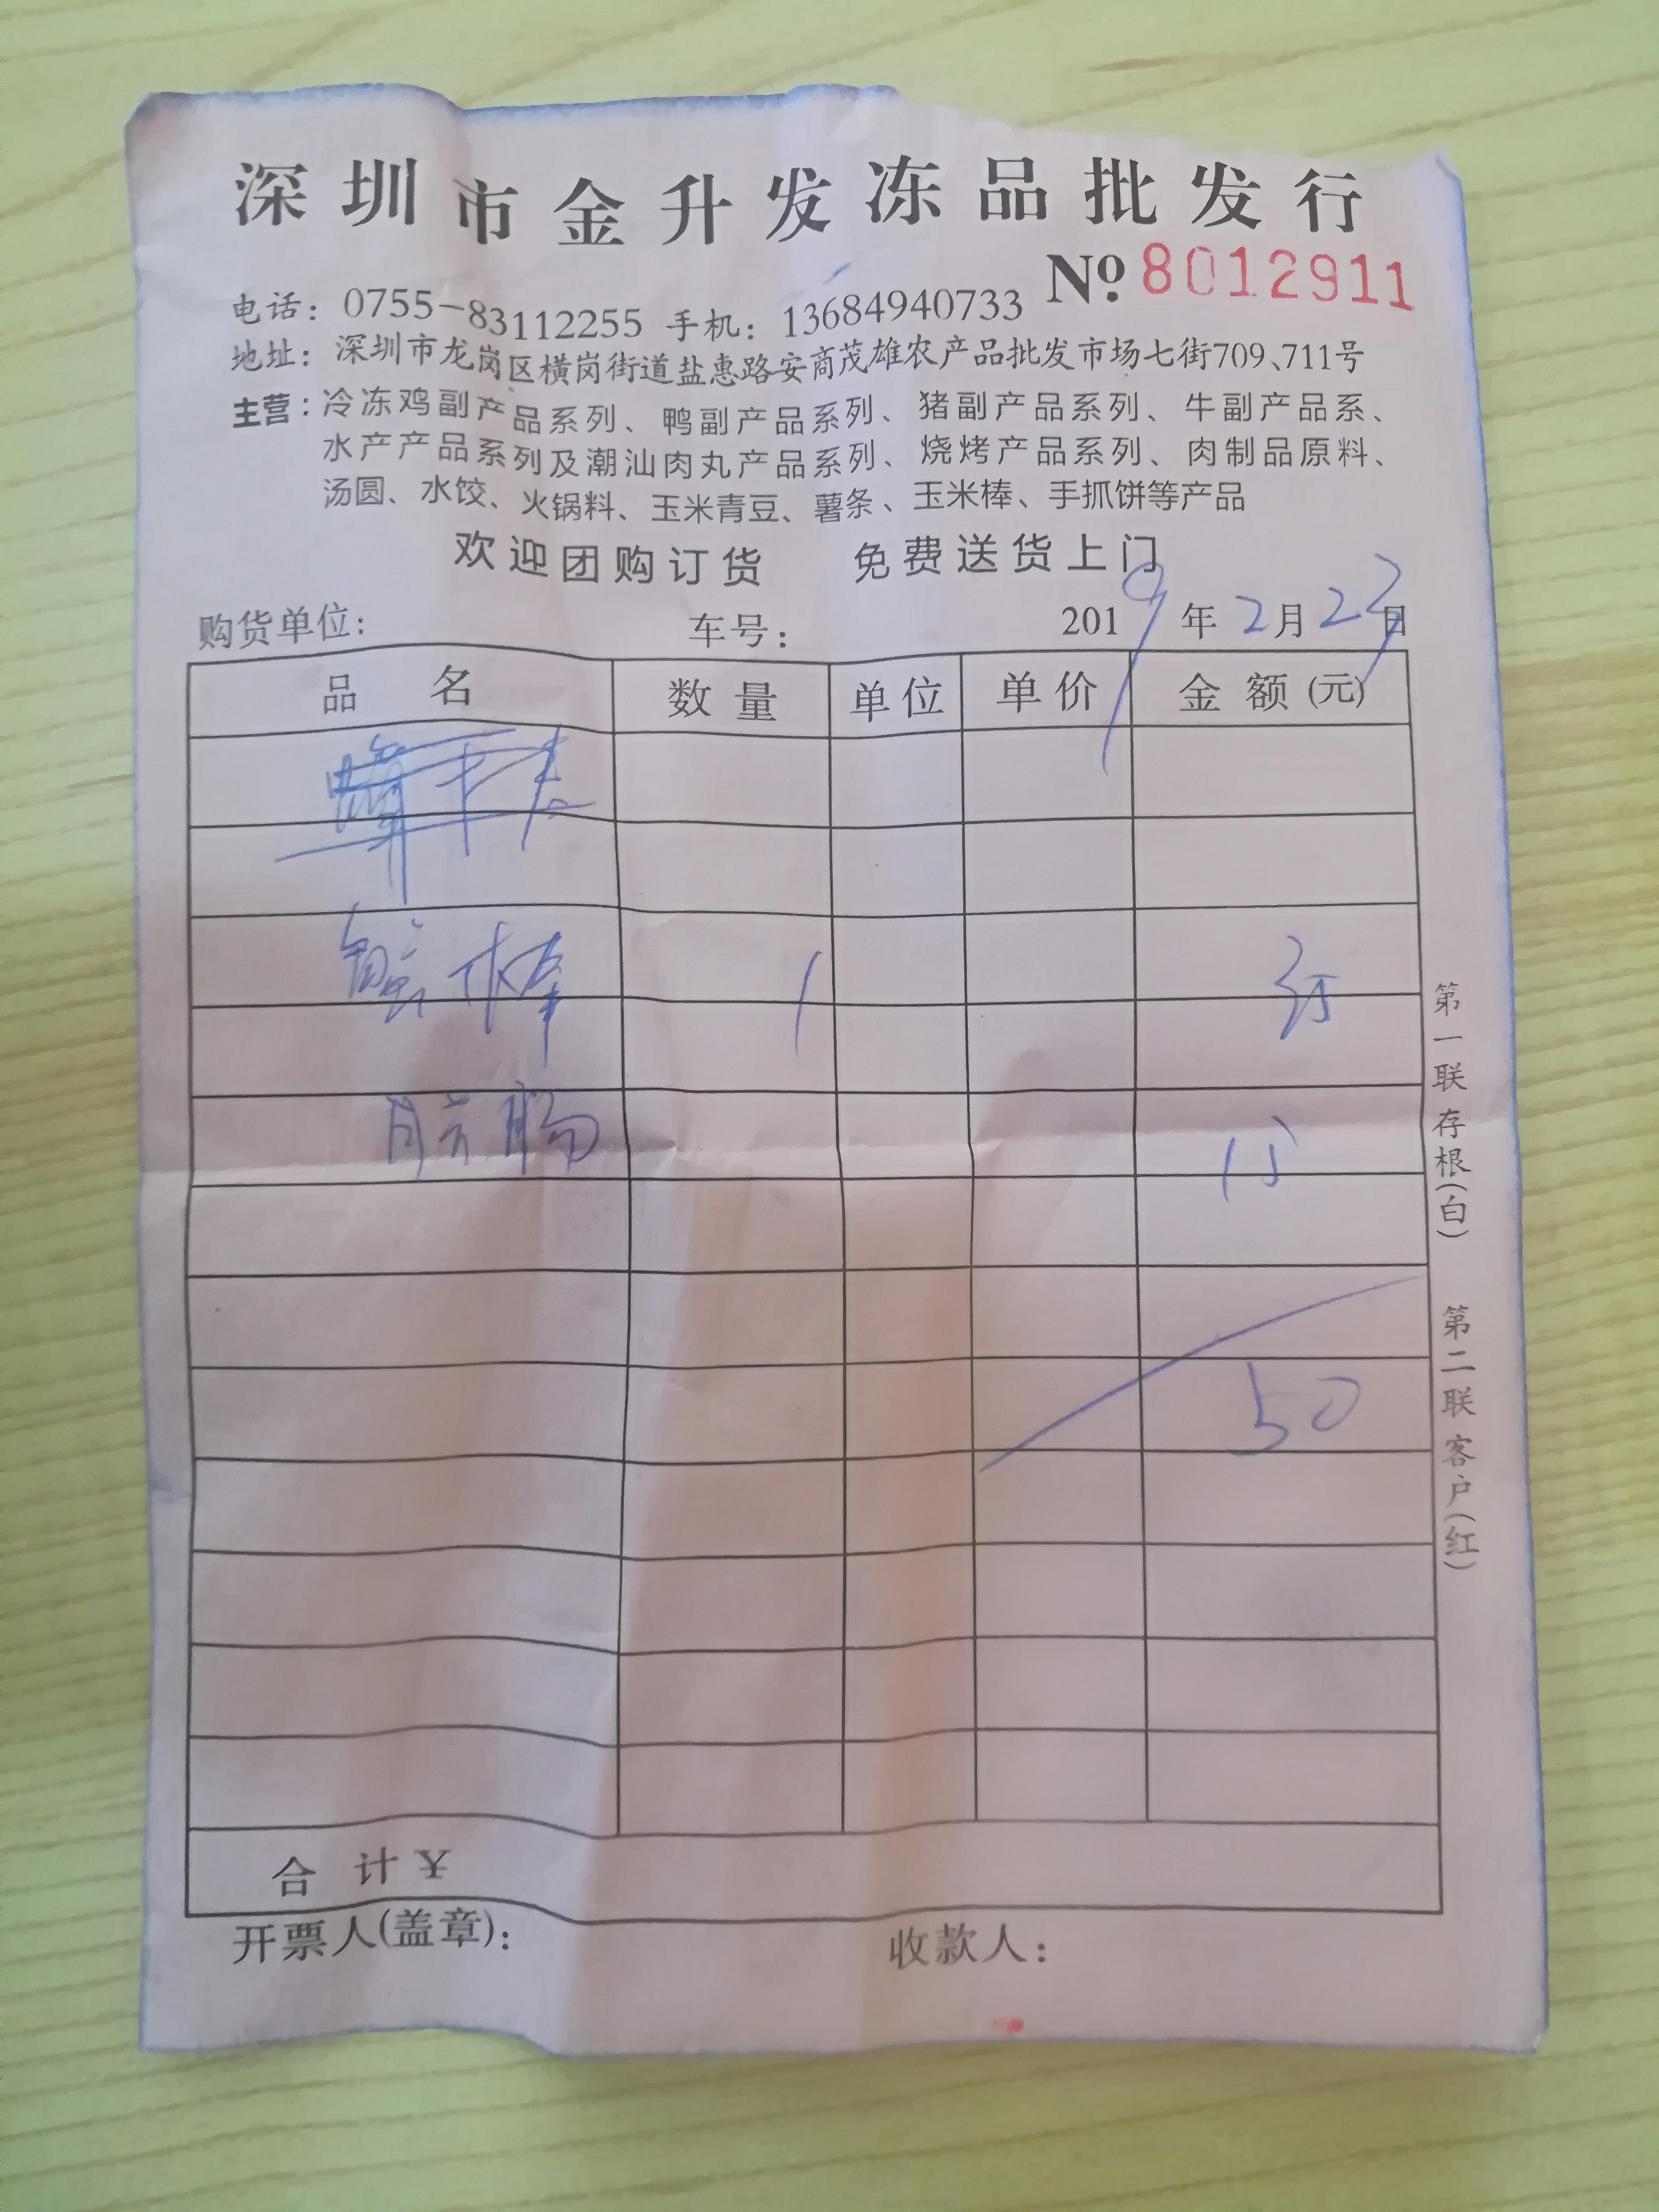 深圳市金升发冻品批发行
№ 8012911
电话：0755-83112255 手机：13684940733
地址：深圳市龙岗区横岗街道盐惠路安商茂雄农产品批发市场七街709、711号
主营：冷冻鸡副产品系列、鸭副产品系列、猪副产品系列、牛副产品系、
水产产品系列及潮汕肉丸产品系列、烧烤产品系列、肉制品原料、
汤圆、水饺、火锅料、玉米青豆、薯条、玉米棒、手抓饼等产品
欢迎团购订货 免费送货上门
购货单位： 车号： 2019年2月23日
品名 数量 单位 单价 金额(元)
棒 1 35
肠 15
50
合计￥
开票人(盖章)： 收款人：
第一联存根(白) 第二联客户(红)